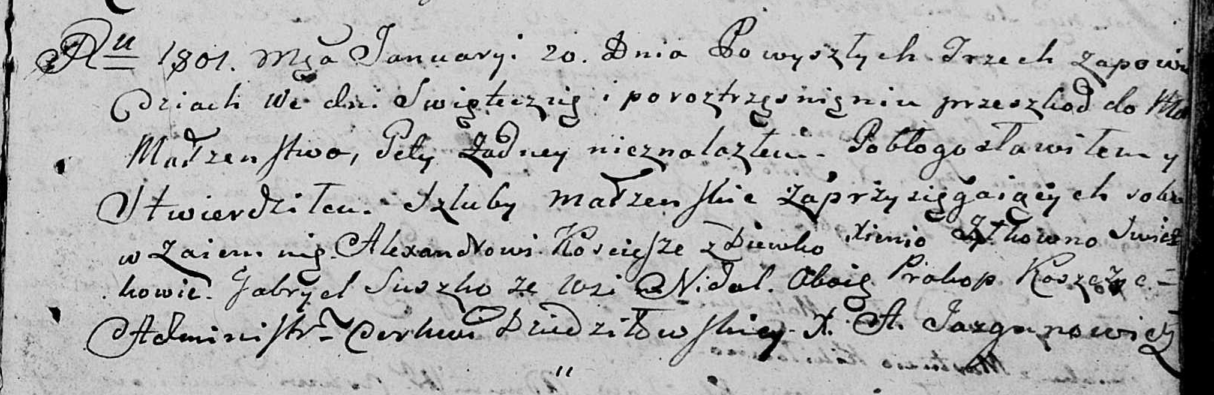 Ru 1801. Mca Januaryi 20. Dnia Po wyszłych Trzech zapowie
dziach We dni Swiąteczne i poroztrząsnieniu przeszkod do
Małzenstwa, Gdy Zadney nieznalazłem. Pobłogosławiłem y
Stwierdziłem. Szluby małzenskie zaprzysięgaiących sobie
wzaiemnie Alexandrowi Kosciesze z Dziewko Xienio
kowie. Gabryel Suszko ze Wsi Nidal. Oboie Prokop
Administr. Cerkwi Dziedziłowskiey X. A. Jazgunowicz